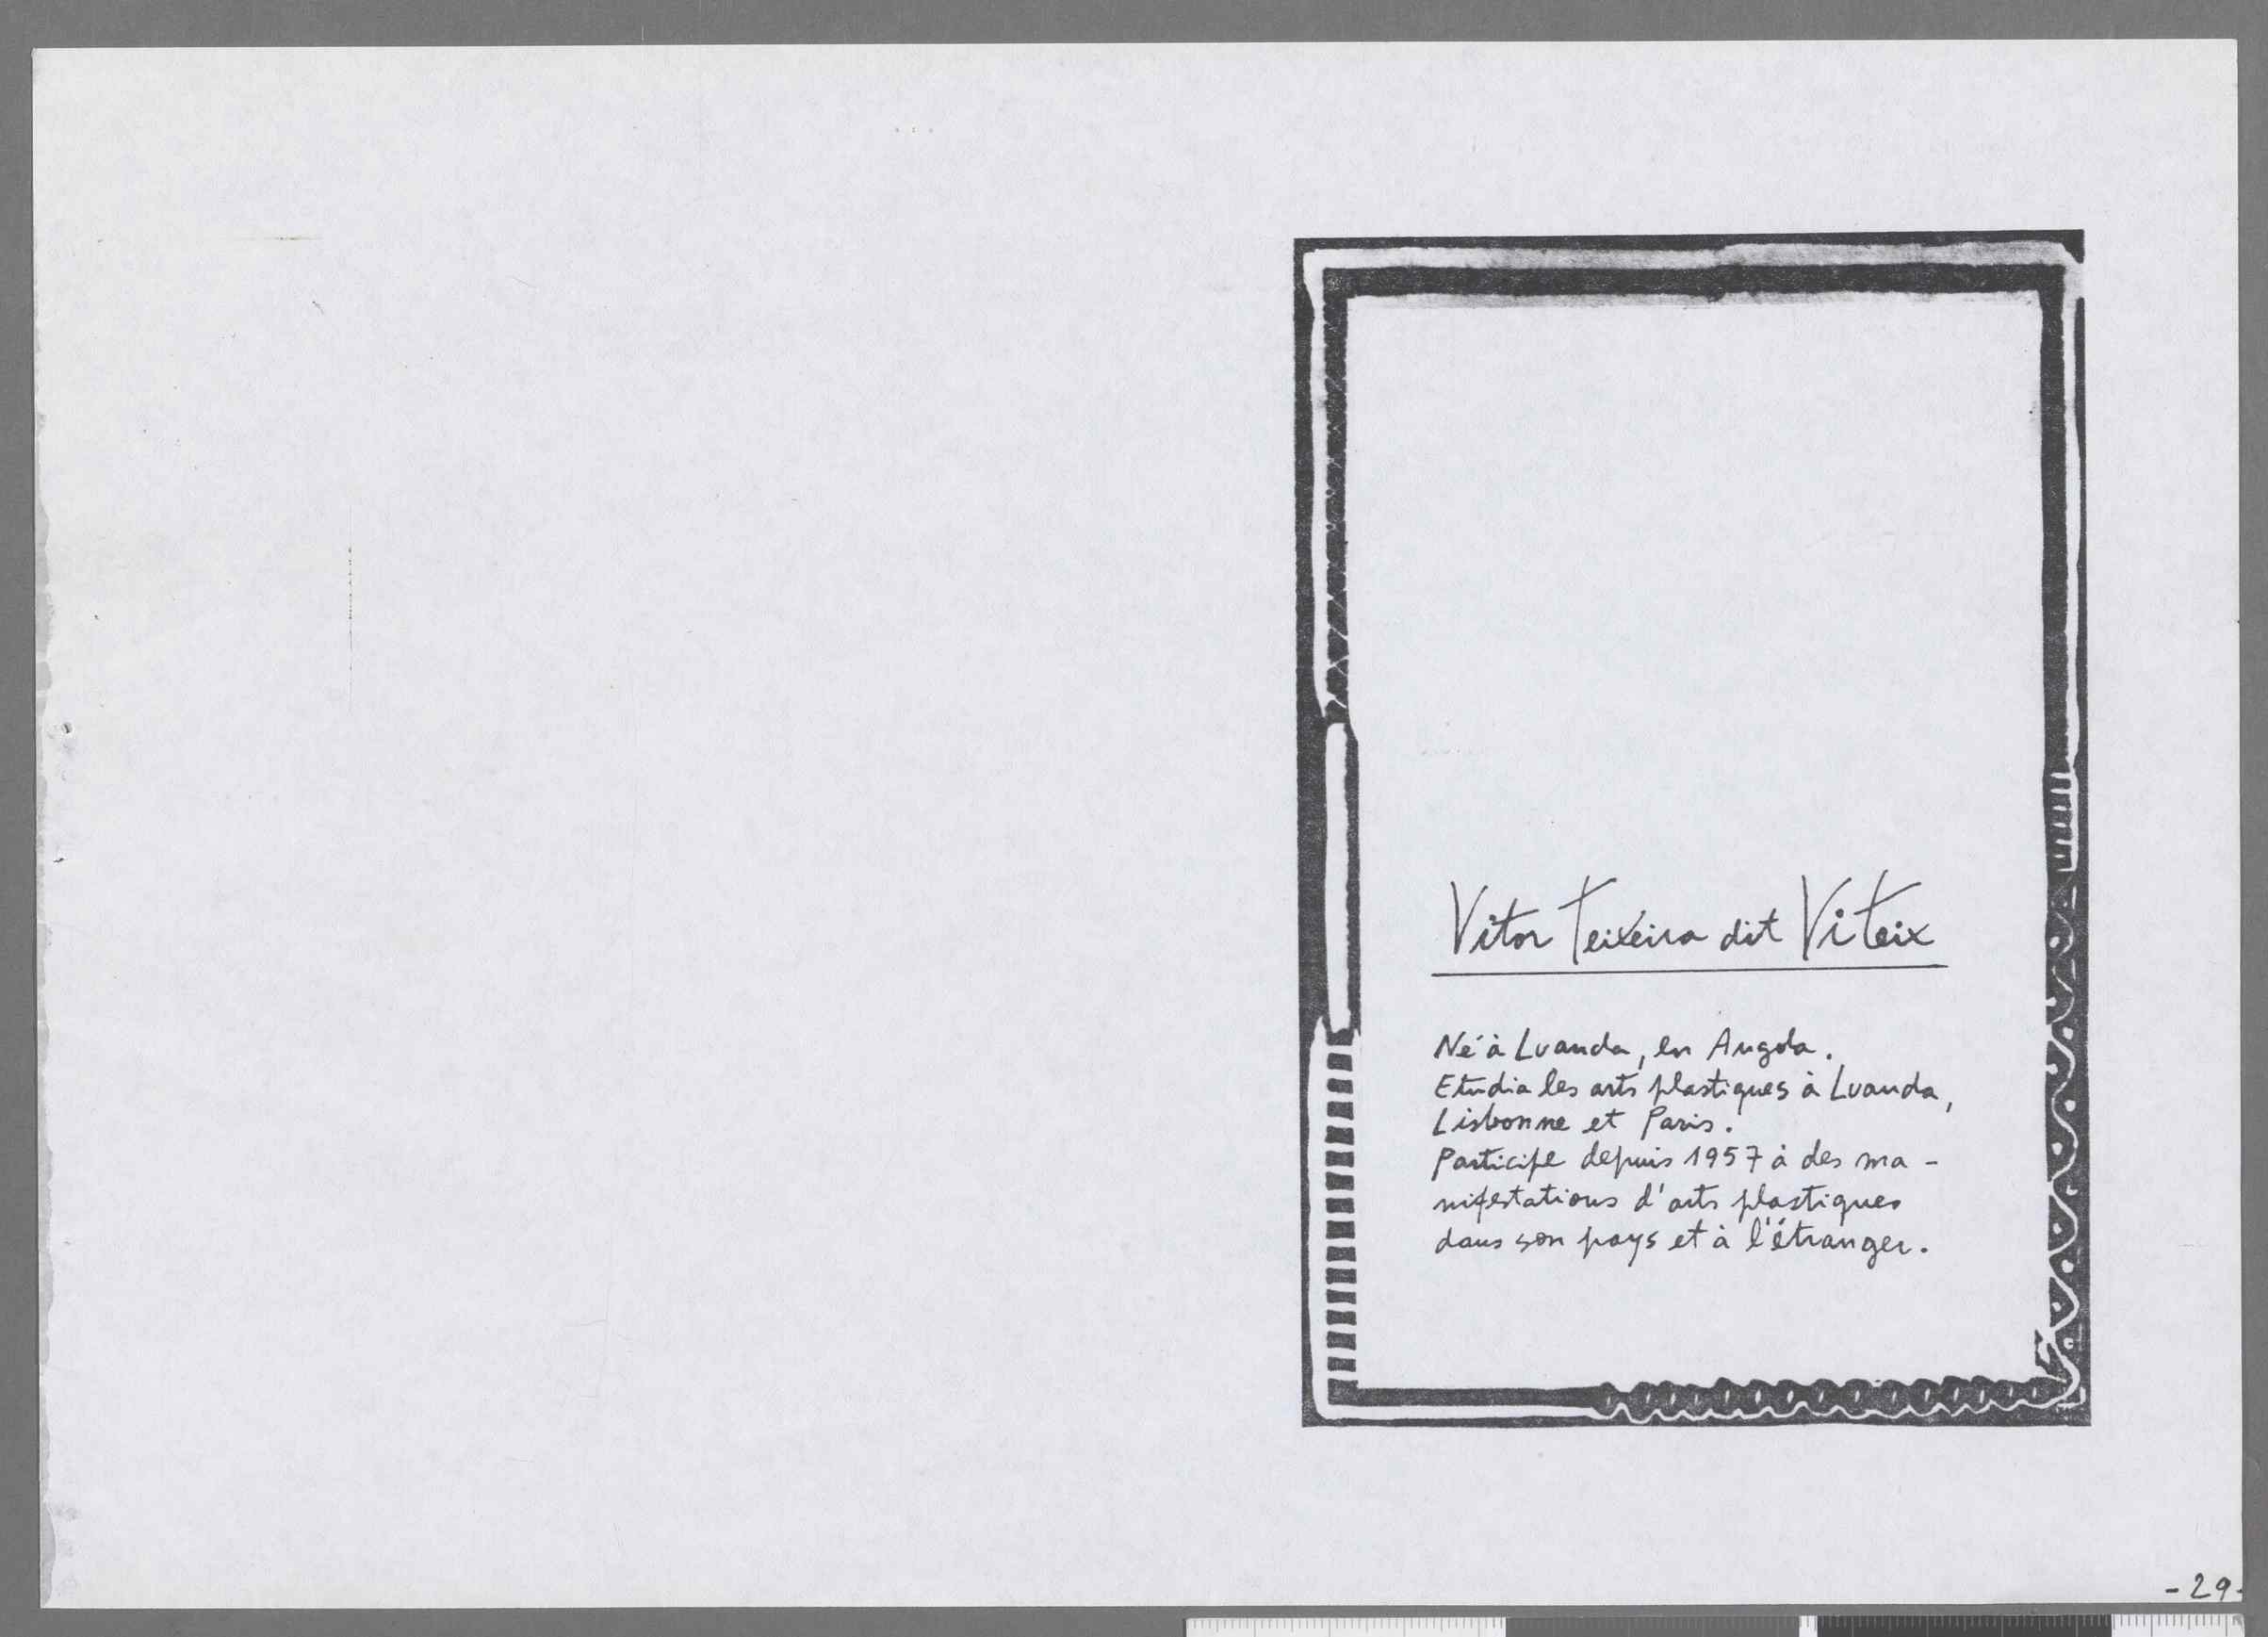 Vitor Teixeira dit Viteix
Né à Luanda, en Angola.
Etudia les arts plastiques à Luanda,
Lisbonne et Paris.
Participe depuis 1957 à des ma-
nifestations d'arts plastiques
dans son pays et à l'étranger.
-29-